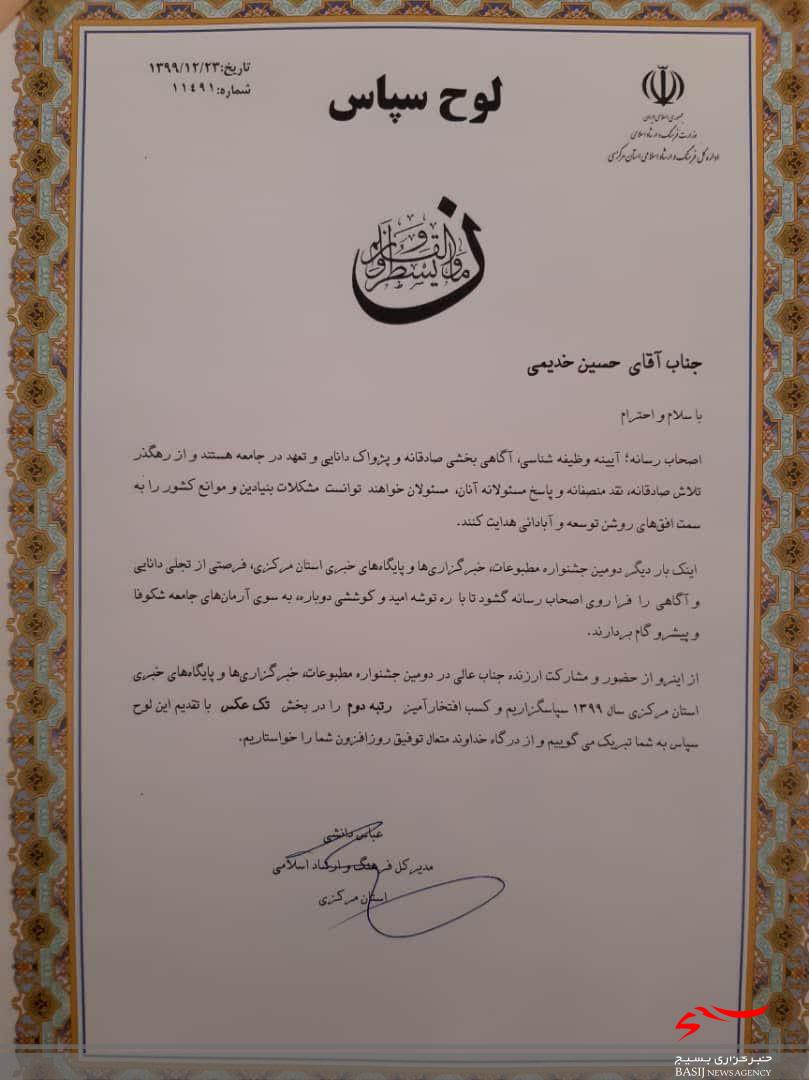 تاریخ:۱۳۹۹/۱۲/۲۳
شماره:۱۱۴۹۱
لوح سپاس
جمهوری اسلامی ایران
وزارت فرهنگ و ارشاد اسلامی
اداره کل فرهنگ و ارشاد اسلامی استان مرکزی
ن والقلم وما یسطرون
جناب آقای حسین خدیمی
با سلام و احترام
اصحاب رسانه؛ آیینه وظیفه شناسی، آگاهی بخشی صادقانه و پژواک دانایی و تعهد در جامعه هستند و از رهگذر
تلاش صادقانه، نقد منصفانه و پاسخ مسئولانه آنان، مسئولان خواهند توانست مشکلات بنیادین و موانع کشور را به
سمت افق‌های روشن توسعه و آبادانی هدایت کنند.
اینک بار دیگر دومین جشنواره مطبوعات، خبرگزاری‌ها و پایگاه‌های خبری استان مرکزی، فرصتی از تجلی دانایی
و آگاهی را فرا روی اصحاب رسانه گشود تا با ره توشه امید و کوششی دوباره، به سوی آرمان‌های جامعه شکوفا
و پیشرو گام بردارند.
از اینرو از حضور و مشارکت ارزنده جناب عالی در دومین جشنواره مطبوعات، خبرگزاری‌ها و پایگاه‌های خبری
استان مرکزی سال ۱۳۹۹ سپاسگزاریم و کسب افتخارآمیز رتبه دوم را در بخش تک عکس با تقدیم این لوح
سپاس به شما تبریک می گوییم و از درگاه خداوند متعال توفیق روزافزون شما را خواستاریم.
عباس دانشی
مدیر کل فرهنگ و ارشاد اسلامی
استان مرکزی
خبرگزاری بسیج
BASIJ NEWS AGENCY